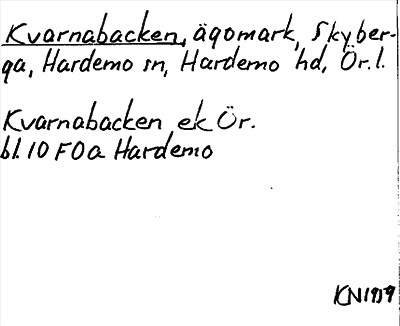 Kvarnabacken, ägomark, Skyber-
ga, Hardemo sn, Hardemo hd, Ör. l.
Kvarnabacken ek Ör.
bl. 10 F0a Hardemo